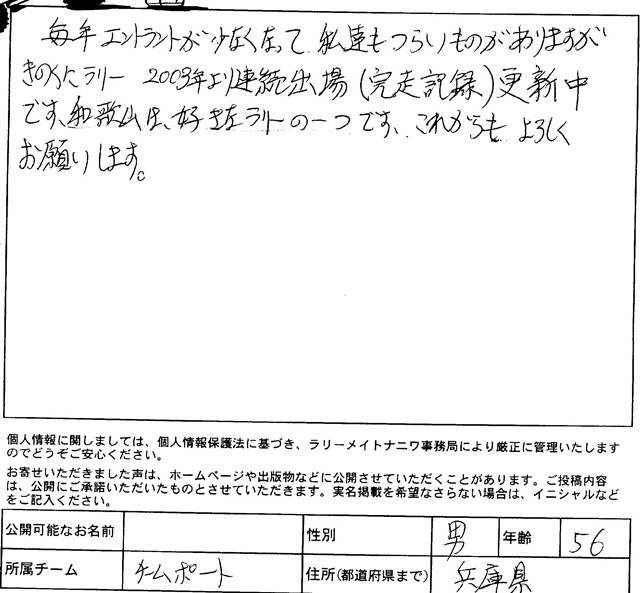 毎年エントラントが少なくなって、私達もつらいものがありますが
きのくにラリー 2003年より連続出場(完走記録)更新中
です、和歌山は、好きなラリーの一つです、これからも よろしく
お願いします。
個人情報に関しましては、個人情報保護法に基づき、ラリーメイトナニワ事務局により厳正に管理いたします
のでどうぞご安心ください。
お寄せいただきました声は、ホームページや出版物などに公開させていただくことがあります。ご投稿内容
は、公開にご承諾いただいたものとさせていただきます。実名掲載を希望なさらない場合は、イニシャルなど
をご記入ください。
公開可能なお名前 性別 男 年齢 56
所属チーム チームポート 住所(都道府県まで) 兵庫県